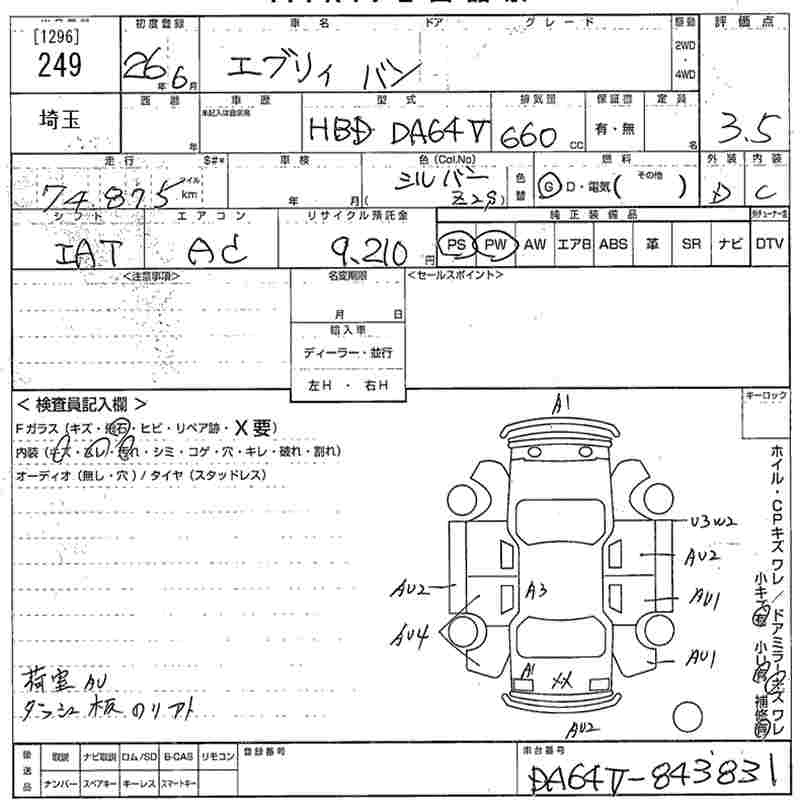 [1296]
249
埼玉
初度登録
26年6月
車名 ドア グレード
エブリィ バン
駆動
2WD
4WD
評価点
3.5
車歴
未記入は自家用
年
型式
HBD DA64V
排気量
660 CC
保証書
有・無
定員
名
走行
74.875 マイル km
車検
年 月(
色(Col.No)
シルバー
Z2S)
色替
燃料
G D・電気( その他 )
外装
D
内装
C
シフト
IAT
エアコン
AC
リサイクル預託金
9,210円
純正装備品
PS PW AW エアB ABS 革 SR ナビ DTV
<注意事項>
名変期限
月 日
輸入車
ディーラー・並行
左H ・ 右H
<セールスポイント>
<検査員記入欄>
Fガラス(キズ・飛石・ヒビ・リペア跡・X要)
内装(キズ・スレ・汚れ・シミ・コゲ・穴・キレ・破れ・割れ)
オーディオ(無し・穴)/タイヤ(スタッドレス)
キーロック
A1
U3W2
AU2
AU2
A3
AU1
AU4
A1
XX
AU1
AU2
ホイル・CPキズワレ/ドアミラーキズワレ
小キズ有 小凹有 補修有
荷室AU
ダッシュ板のリアト
後送品
取説 ナビ取説 ロム/SD B-CAS リモコン
ナンバー スペアキー キーレス スマートキー
登録番号
車台番号
DA64V-843831